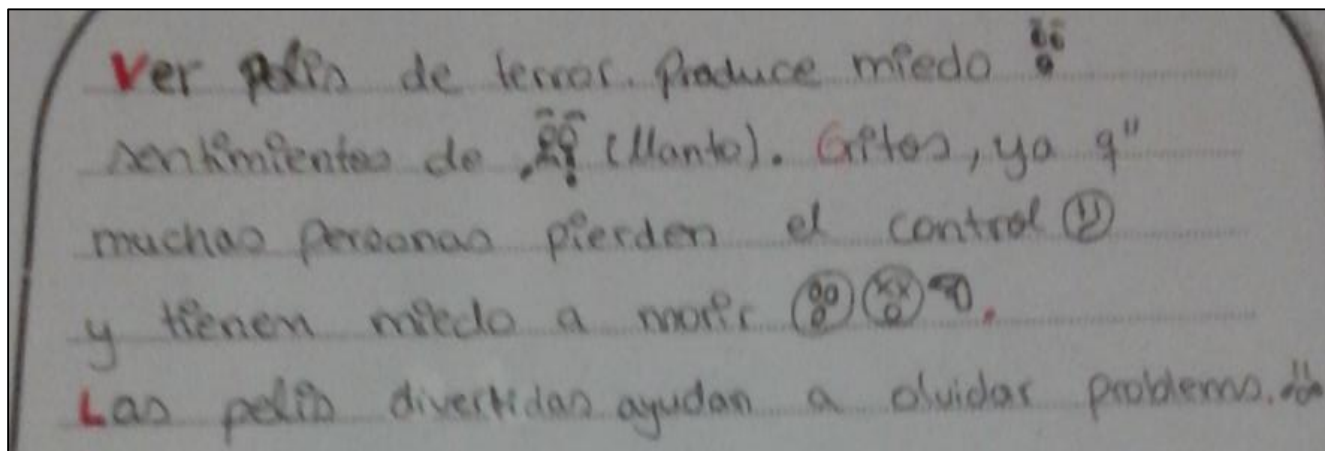 Ver pelis de terror. Produce miedo
sentimientos de (llanto). Gritos, ya q"
muchas personas pierden el control
y tienen miedo a morir .
Las pelis divertidas ayudan a olvidar problems.